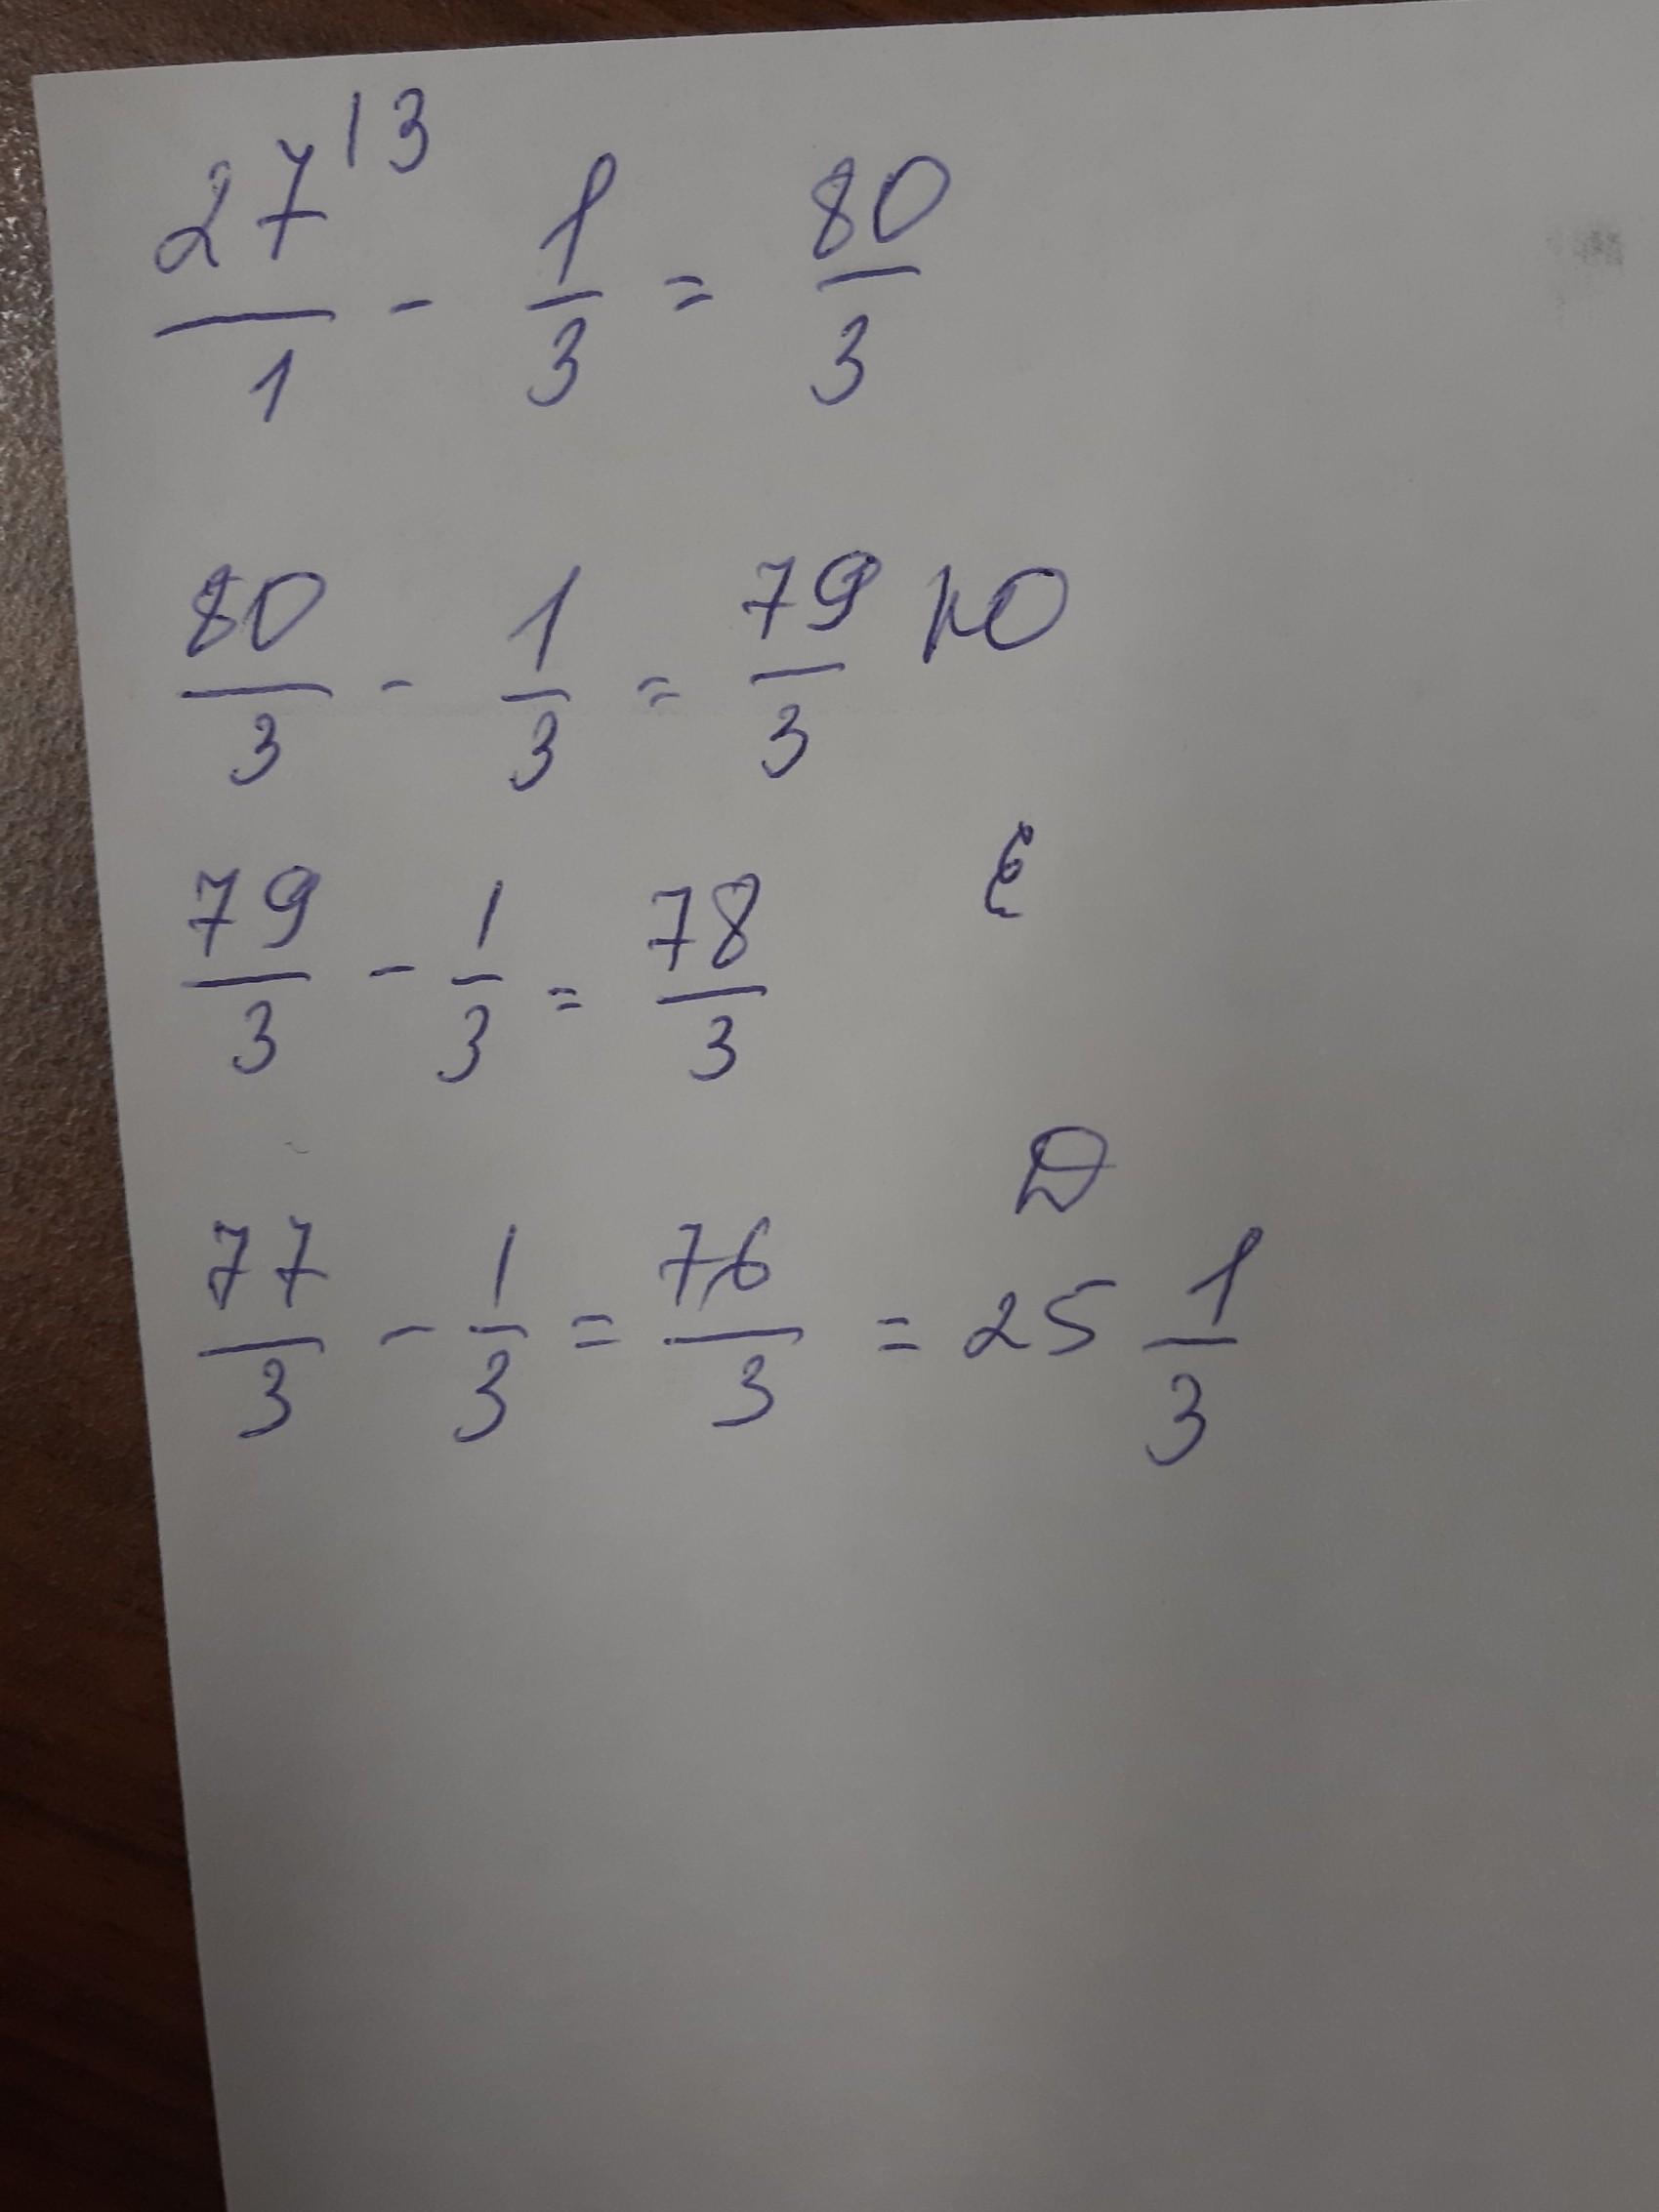 27^{13}/1 - 1/3 = 80/3
80/3 - 1/3 = 79/3 Ю
79/3 - 1/3 = 78/3 Е
77/3 - 1/3 = 76/3 = 25 1/3 Д